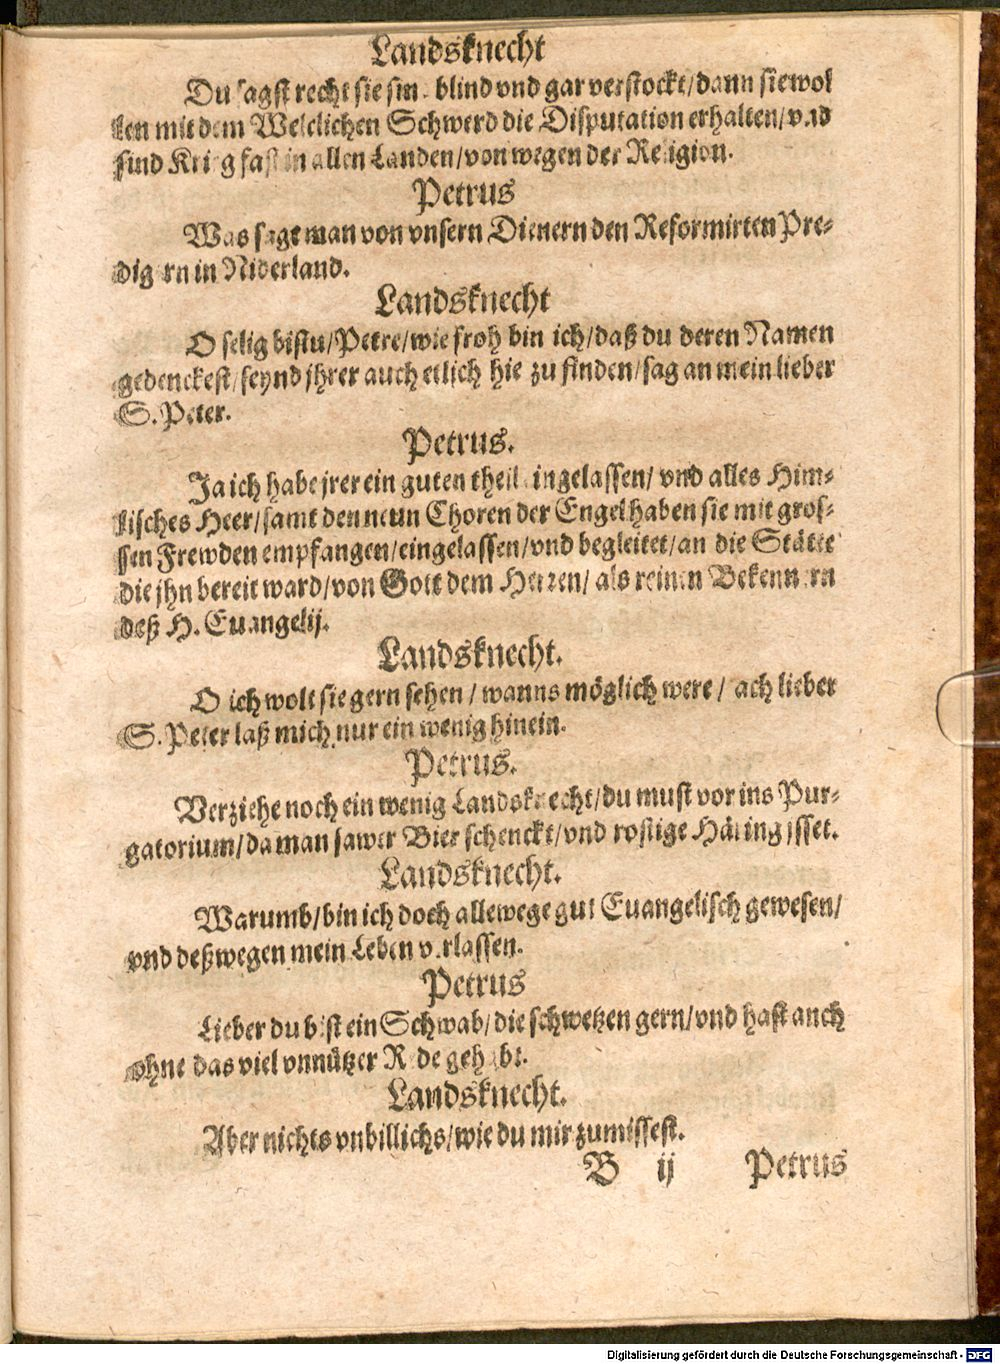 Landsknecht
Du sagst recht sie sin. blind vnd gar verstockt/dann sie wol
len mit dem Weltlichen Schwerd die Disputation erhalten/vnd
sind Krieg fast in allen Landen/von wegen der Religion.
Petrus
Was sagt man von vnsern Dienern den Reformirten Pre-
digern in Niderland.
Landsknecht
O selig bistu/Petre/wie froh bin ich/daß du deren Namen
gedenckest/seynd jhrer auch etlich hie zu finden/sag an mein lieber
S. Peter.
Petrus.
Ja ich habe jrer ein guten theil eingelassen/ vnd alles Him-
lisches Heer/samt den neun Choren der Engel haben sie mit gros-
sen Frewden empfangen/eingelassen/vnd begleitet/an die Stätte
die jhn bereit ward/von Gott dem Herren/ als reinen Bekennern
deß H. Euangelij.
Landsknecht.
O ich wolt sie gern sehen / wanns möglich were / ach lieber
S. Peter laß mich nur ein wenig hinein.
Petrus.
Verziehe noch ein wenig Landsknecht/du must vor ins Pur-
gatorium/da man sawer Bier schenckt/vnd rostige Häring jsset.
Landsknecht.
Warumb/bin ich doch allewege gut Euangelisch gewesen/
vnd deßwegen mein Leben verlassen.
Petrus
Lieber du bist ein Schwab/die schwetzen gern/vnd hast auch
ohne das viel vnnützer Rede gehabt.
Landsknecht.
Aber nichts vnbillichs/wie du mir zumissest.
B ij Petrus
Digitalisierung gefördert durch die Deutsche Forschungsgemeinschaft - DFG